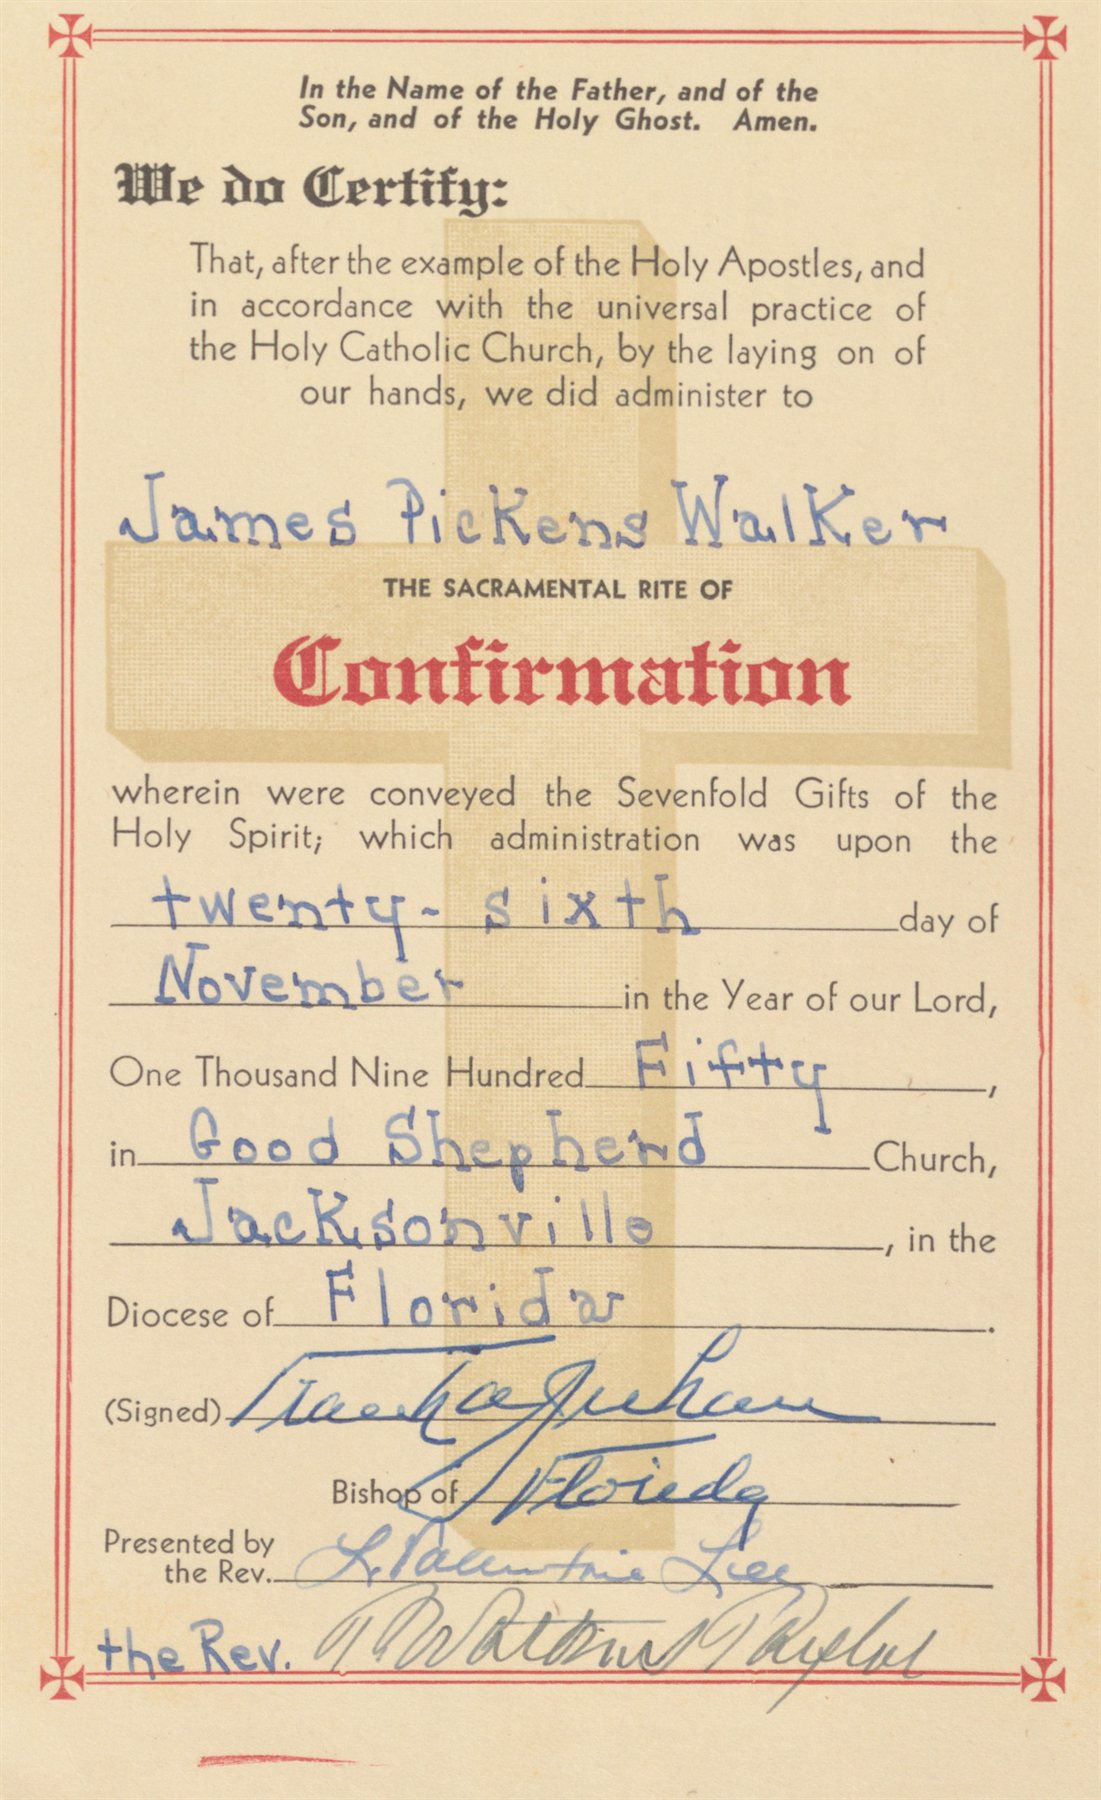 In the Name of the Father, and of the
Son, and of the Holy Ghost. Amen.
We do Certify:
That, after the example of the Holy Apostles, and
in accordance with the universal practice of
the Holy Catholic Church, by the laying on of
our hands, we did administer to
James Pickens Walker
THE SACRAMENTAL RITE OF
Confirmation
wherein were conveyed the Sevenfold Gifts of the
Holy Spirit; which administration was upon the
twenty-sixth day of
November in the Year of our Lord,
One Thousand Nine Hundred Fifty,
in Good Shepherd Church,
Jacksonville, in the
Diocese of Florida.
(Signed) Frank A. Juhan
Bishop of Florida
Presented by
the Rev. L. Valentine Lee
the Rev. Taylor